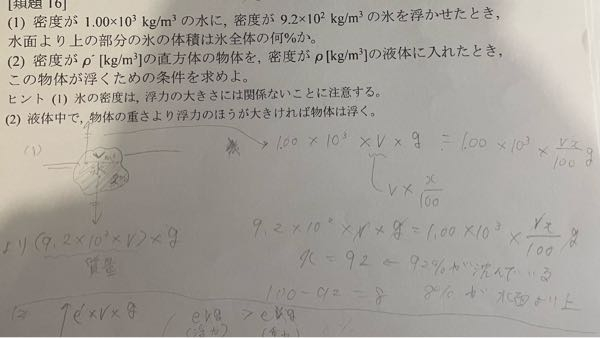 [類題 16]
(1) 密度が 1.00×10³ kg/m³ の水に, 密度が 9.2×10² kg/m³ の氷を浮かせたとき,
水面より上の部分の氷の体積は氷全体の何%か。
(2) 密度が ρ' [kg/m³]の直方体の物体を, 密度が ρ [kg/m³]の液体に入れたとき,
この物体が浮くための条件を求めよ。
ヒント (1) 氷の密度は, 浮力の大きさには関係ないことに注意する。
(2) 液体中で, 物体の重さより浮力のほうが大きければ物体は浮く。
(1)
1.00 × 10³ × V × g = 1.00 × 10³ × Vx/100 g
V × x/100
氷
より (9.2×10² × V) × g
質量
9.2 × 10² × V × g = 1.00 × 10³ × Vx/100 g
x = 92 ← 92%が沈んでいる
100 - 92 = 8 8%が 水面より上
(2)